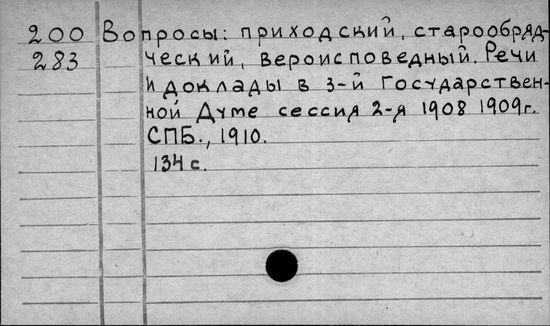 200 Вопросы: приходский, старообряд-
283 ческий, вероисповедный. Речи
и доклады в 3-й Государствен-
ной Думе сессия 2-я 1908 1909г.
СПБ., 1910.
134 с.